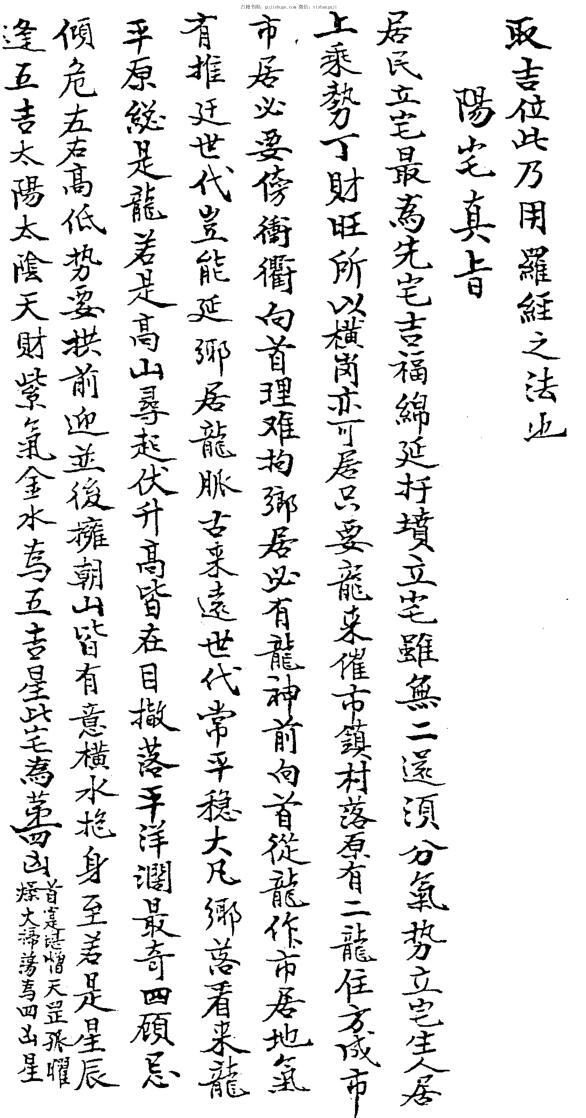 古籍书阁：gujishuge.com 微信：xishanguji
取吉位此乃用羅經之法也
陽宅真旨
居民立宅最為先宅吉福綿延扦墳立宅雖無二還須分氣势立宅生人居
上乘勢丁財旺所以橫岗亦可居只要龍来催市鎮村落原有二龍住方成市
市居必要傍衝衢向首理难拘鄉居必有龍神前向首從龍作市居地氣
有推迁世代豈能延鄉居龍脈古来遠世代常平穩大凡鄉落看来龍
平原総是龍若是高山尋起伏升高皆在目撒落平洋濶最奇四顧忌
傾危左右高低势要拱前迎並後擁朝山皆有意橫水抱身至若是星辰
逢五吉太陽太陰天財紫氣金水為五吉星此宅為第四凶
首天罡孤曜
燥火掃蕩為四凶星